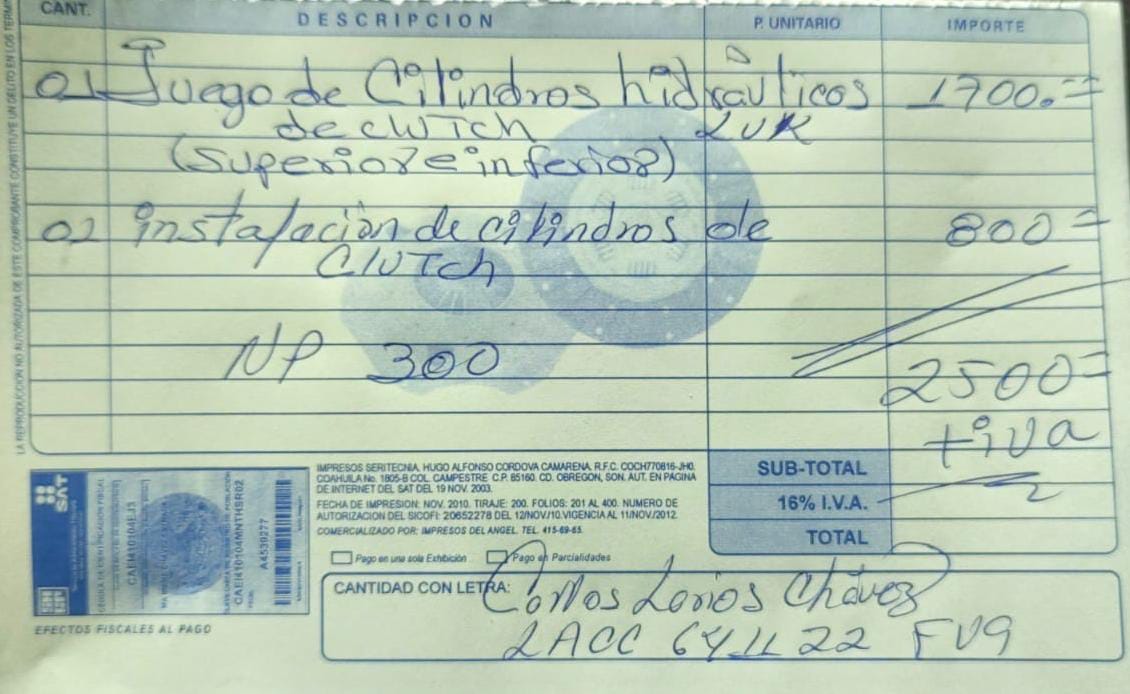 CANT. DESCRIPCION P. UNITARIO IMPORTE
01 Juego de Cilindros hidráulicos 1700.=
de clutch LUK
(superior e inferior)
02 instalación de cilindros de 800=
Clutch
NP 300
2500=
+iva
SUB-TOTAL
16% I.V.A.
TOTAL
LA REPRODUCCION NO AUTORIZADA DE ESTE COMPROBANTE CONSTITUYE UN DELITO EN LOS TERM
SAT
A4539277
EFECTOS FISCALES AL PAGO
IMPRESOS SERITECNIA, HUGO ALFONSO CORDOVA CAMARENA, R.F.C. COCH770816-JH0,
COAHUILA No. 1805-B COL. CAMPESTRE C.P. 85160. CD. OBREGON, SON. AUT. EN PAGINA
DE INTERNET DEL SAT DEL 19 NOV. 2003.
FECHA DE IMPRESION: NOV. 2010. TIRAJE: 200. FOLIOS: 201 AL 400. NUMERO DE
AUTORIZACION DEL SICOFI: 20652278 DEL 12/NOV/10. VIGENCIA AL 11/NOV/2012.
COMERCIALIZADO POR: IMPRESOS DEL ANGEL. TEL. 415-69-65.
Pago en una sola Exhibición Pago en Parcialidades
CANTIDAD CON LETRA:
Chávez
22 FV9